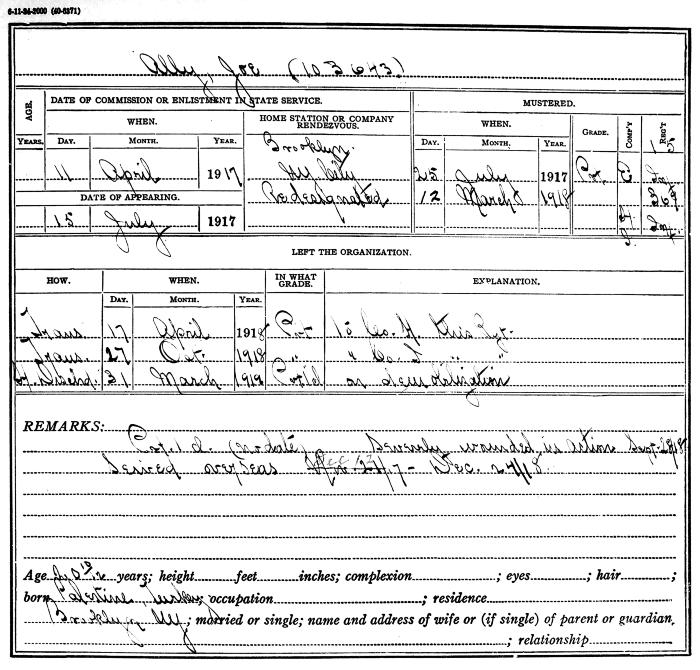 6-11-24-2000 (40-6371)
Ally, Joe (103643)
AGE. DATE OF COMMISSION OR ENLISTMENT IN STATE SERVICE. MUSTERED.
WHEN. HOME STATION OR COMPANY RENDEZVOUS. WHEN. GRADE. COMP'Y REG'T
YEARS. DAY. MONTH. YEAR. DAY. MONTH. YEAR.
11 April 1917 Brooklyn 25 July 1917 Pvt
NY City
DATE OF APPEARING. Redesignated 12 March 1918
15 July 1917
LEFT THE ORGANIZATION.
HOW. WHEN. IN WHAT GRADE. EXPLANATION.
DAY. MONTH. YEAR.
Trans. 17 April 1918 Pvt to Co. H this Rgt.
Trans. 27 Oct. 1918 " " Co. I " "
31 March 1919 on demobilization
REMARKS:
Corp. (no date) Severely wounded in action Sept.
Served overseas Dec. 24/18
Age years; height feet inches; complexion ; eyes ; hair ;
born Palestine Turkey; occupation ; residence
Brooklyn NY; married or single; name and address of wife or (if single) of parent or guardian,
; relationship